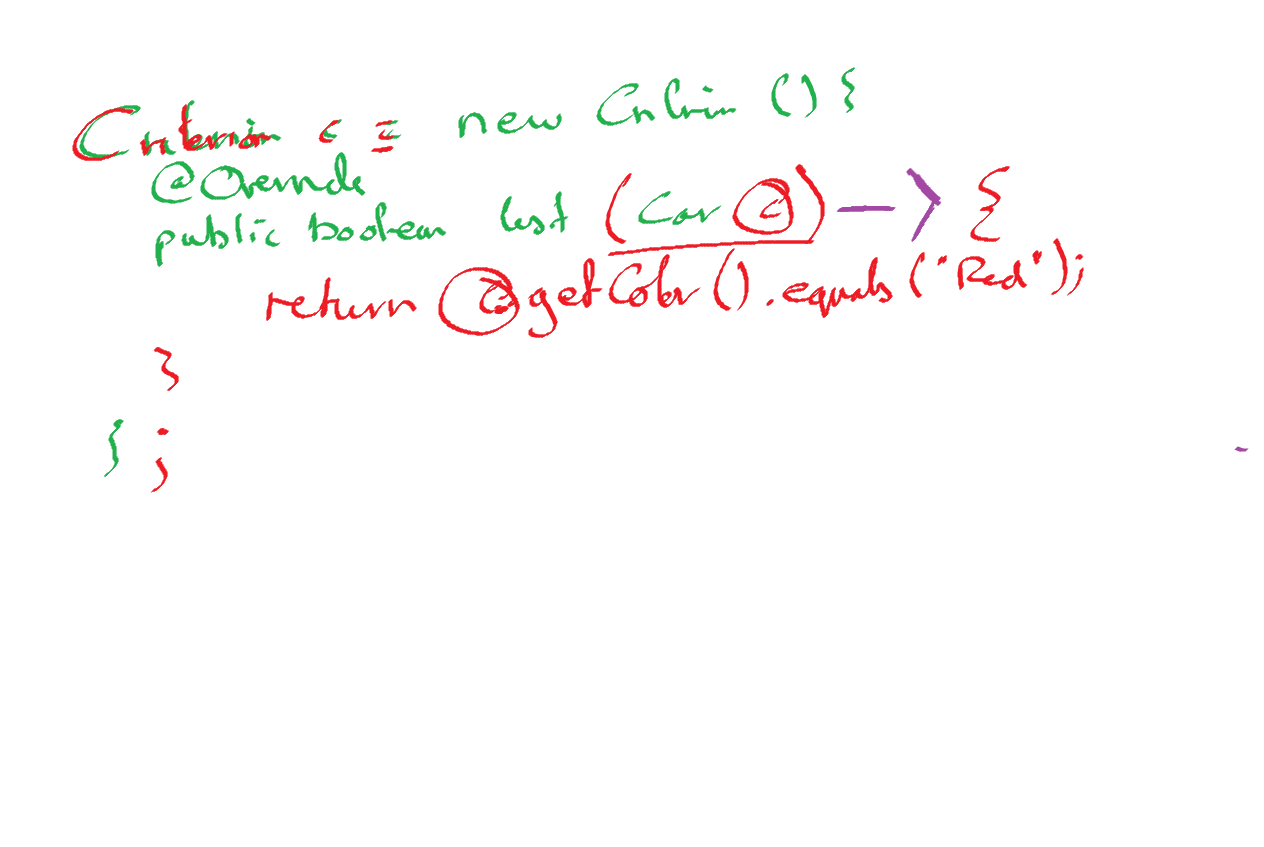 Criterion c = new Criterion () {
@Override
public boolean test (Car c) -> {
return c getColor () . equals ( "Red" ) ;
}
} ;